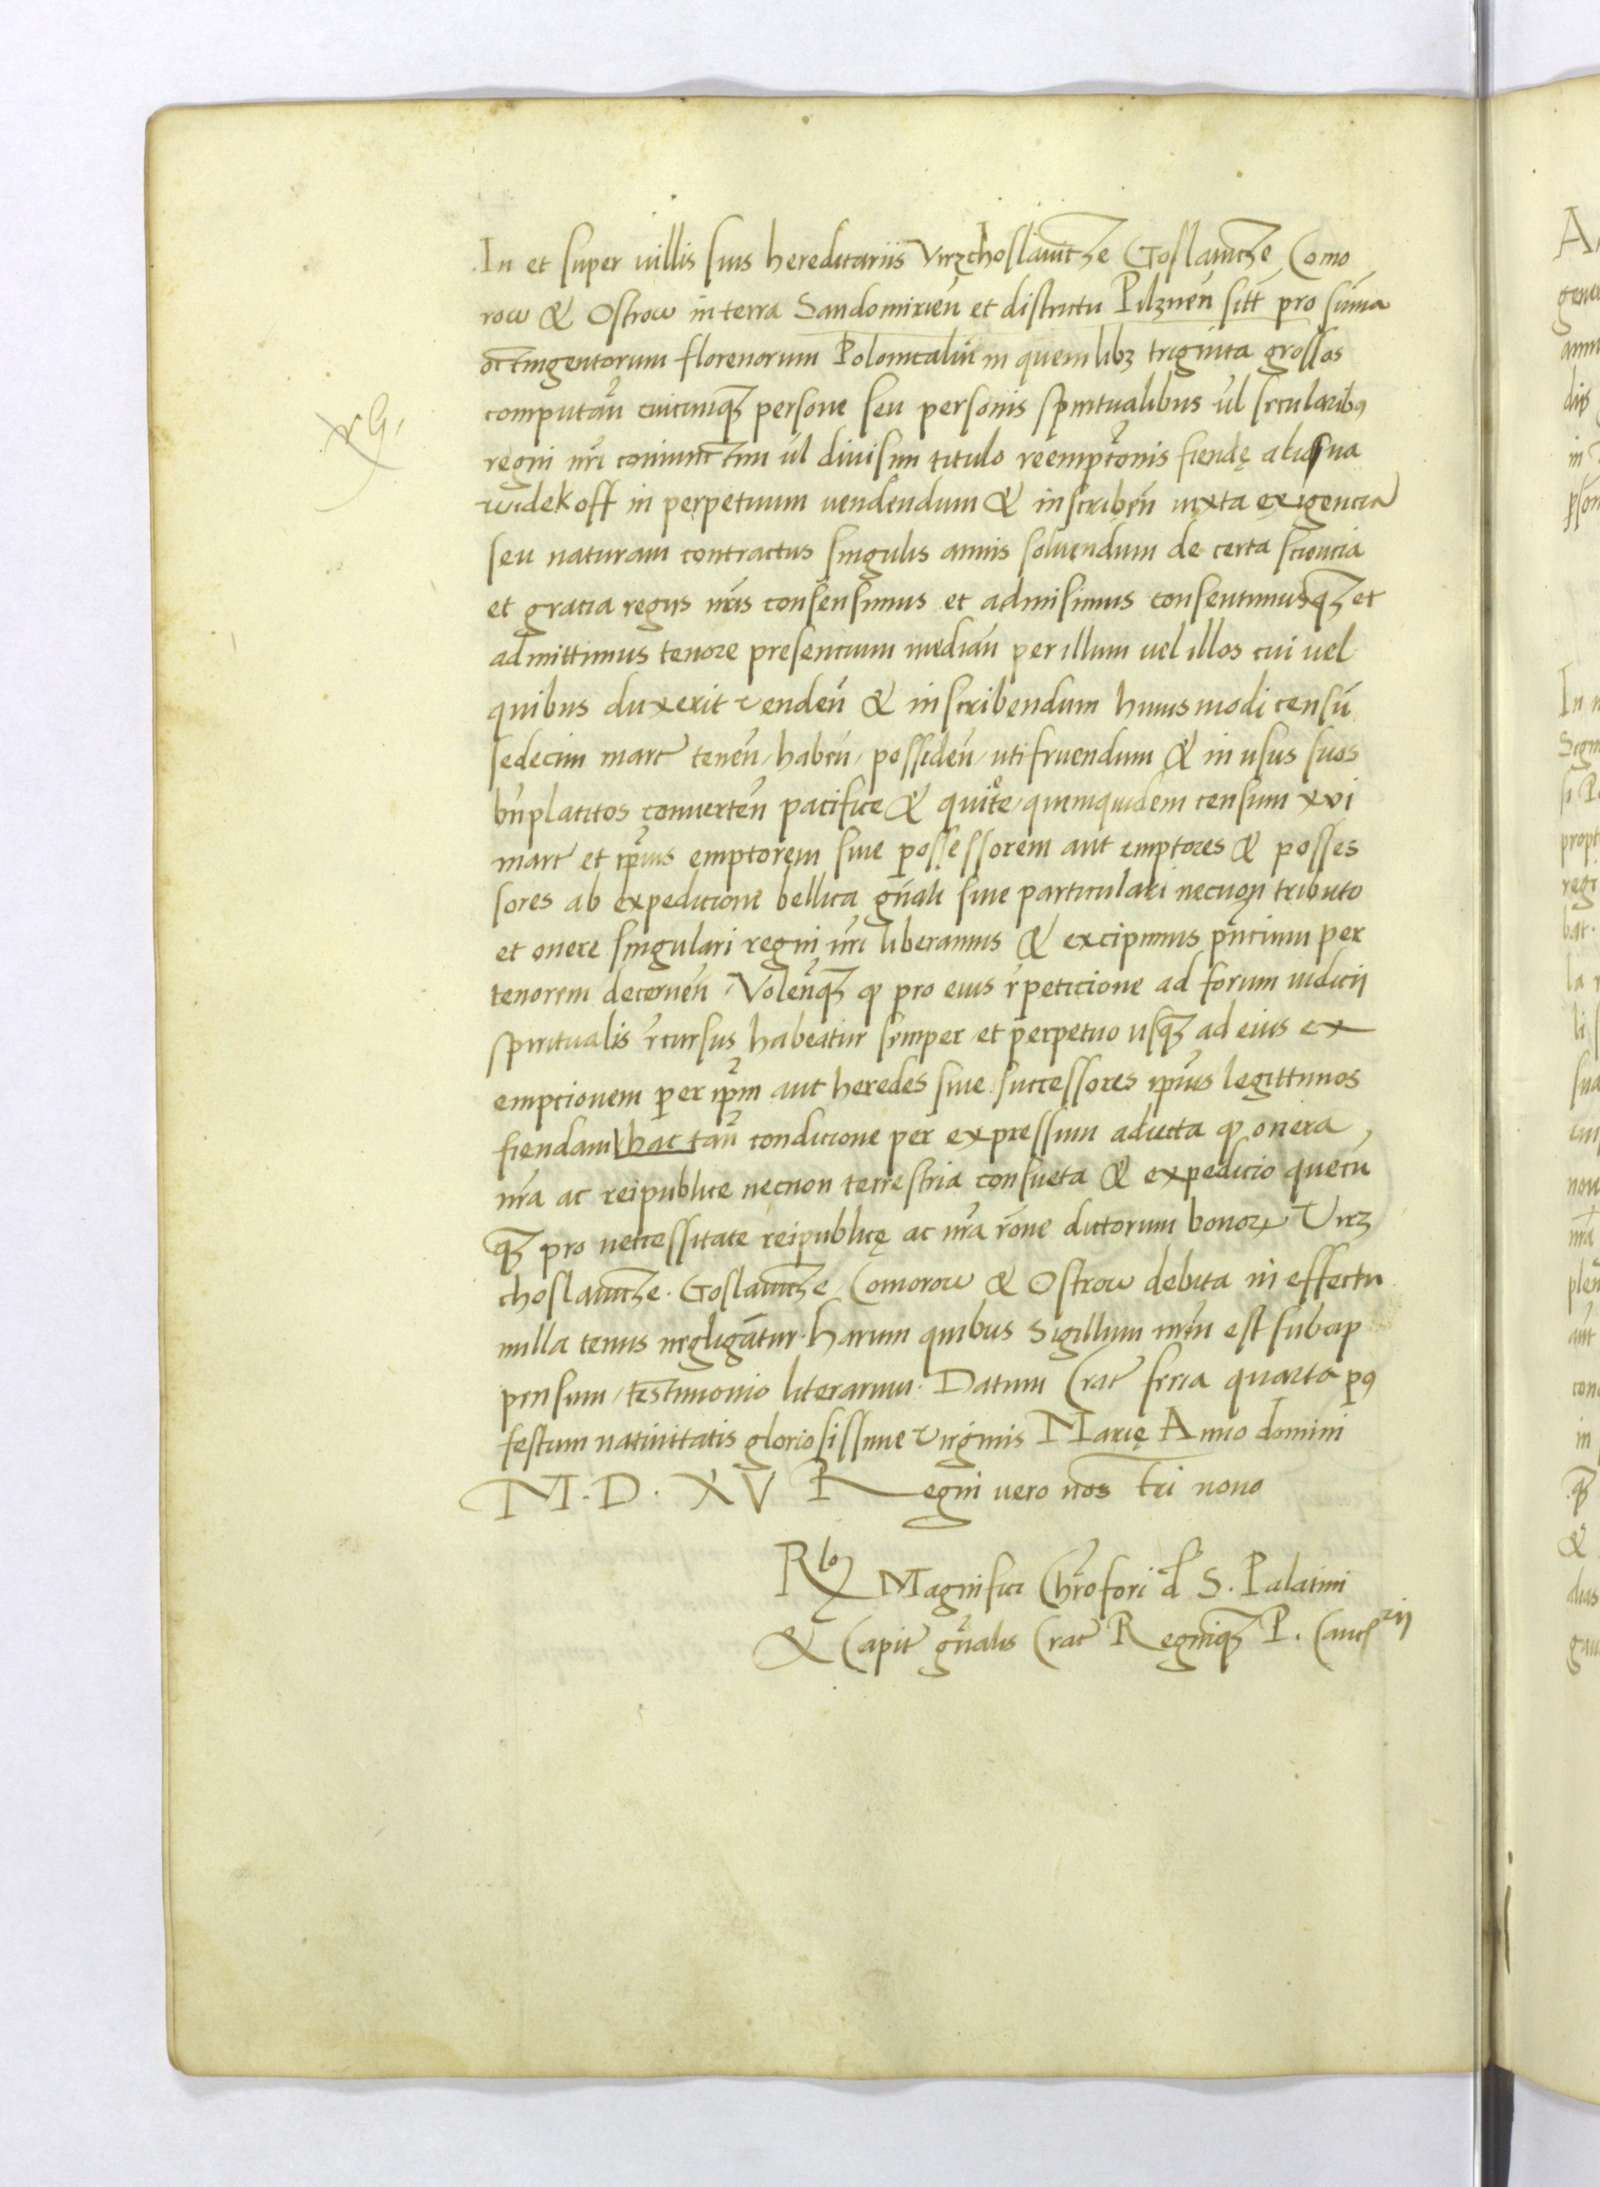 In et super villis suis hereditariis Virzchoslauitze Goslauitze Como
row & Ostrow in terra Sandomirieñ et districtu Pilzneñ sitt pro sum̄a
octingentorum florenorum Polonicaliū in quemlibz triginta grossos
computañ cuicunqz persone seu personis spiritualibus ul̄ secularibꝰ
regni nr̄i coniunctim ul̄ divisim titulo reemptōnis fiendę alias na
widerkoff in perpetuum vendendum & inscribeñ iuxta exigenciā
seu naturam contractus singulis annis solvendum de certa sciencia
et gracia regijs nr̄is consensimus et admisimus consentimusqz et
admittimus tenore presencium mediañ per illum vel illos cui vel
quibus duxerit vendeñ & inscribendum huiusmodi censū
sedecim marc teneñ habeñ possideñ utifruendum & in usus suos
bn̄placitos converteñ pacifice & quiete quemquidem censum xvi
marc et ip̄ius emptorem sive possessorem aut emptores & posses
sores ab expedicione bellica gn̄ali sive particulari necnon tributo
et onere singulari regni nr̄i liberamus & excipimus pn̄cium per
tenorem decerneñ Volentqz ꝙ pro eius repeticione ad forum iudicii
spiritualis recursus habeatur semper et perpetuo usqz ad eius ex
empcionem per ip̄m aut heredes sive successores ip̄ius legittimos
fiendam hac tañ condicione per expressum adiecta ꝙ onera
nr̄a ac reipublice necnon terrestria consueta & expedicio quecū
qz pro necessitate reipublicę ac nr̄a rōne dictorum bonoꝝ Virz
choslauitze Goslauitze Comorow & Ostrow debita in effectu
nulla tenus negligātur Harum quibus Sigillum nr̄m est subap
pensum testimonio literarum Datum Crac feria quarta pꝰ
festum nativitatis gloriosissime Virginis Marię Anno domini
M. D. XV Regni vero nostri nono
Rlo Magnifici Chr̄ofori d S. Palatini
& Capit gn̄alis Crac Regniqz P. Cancrii